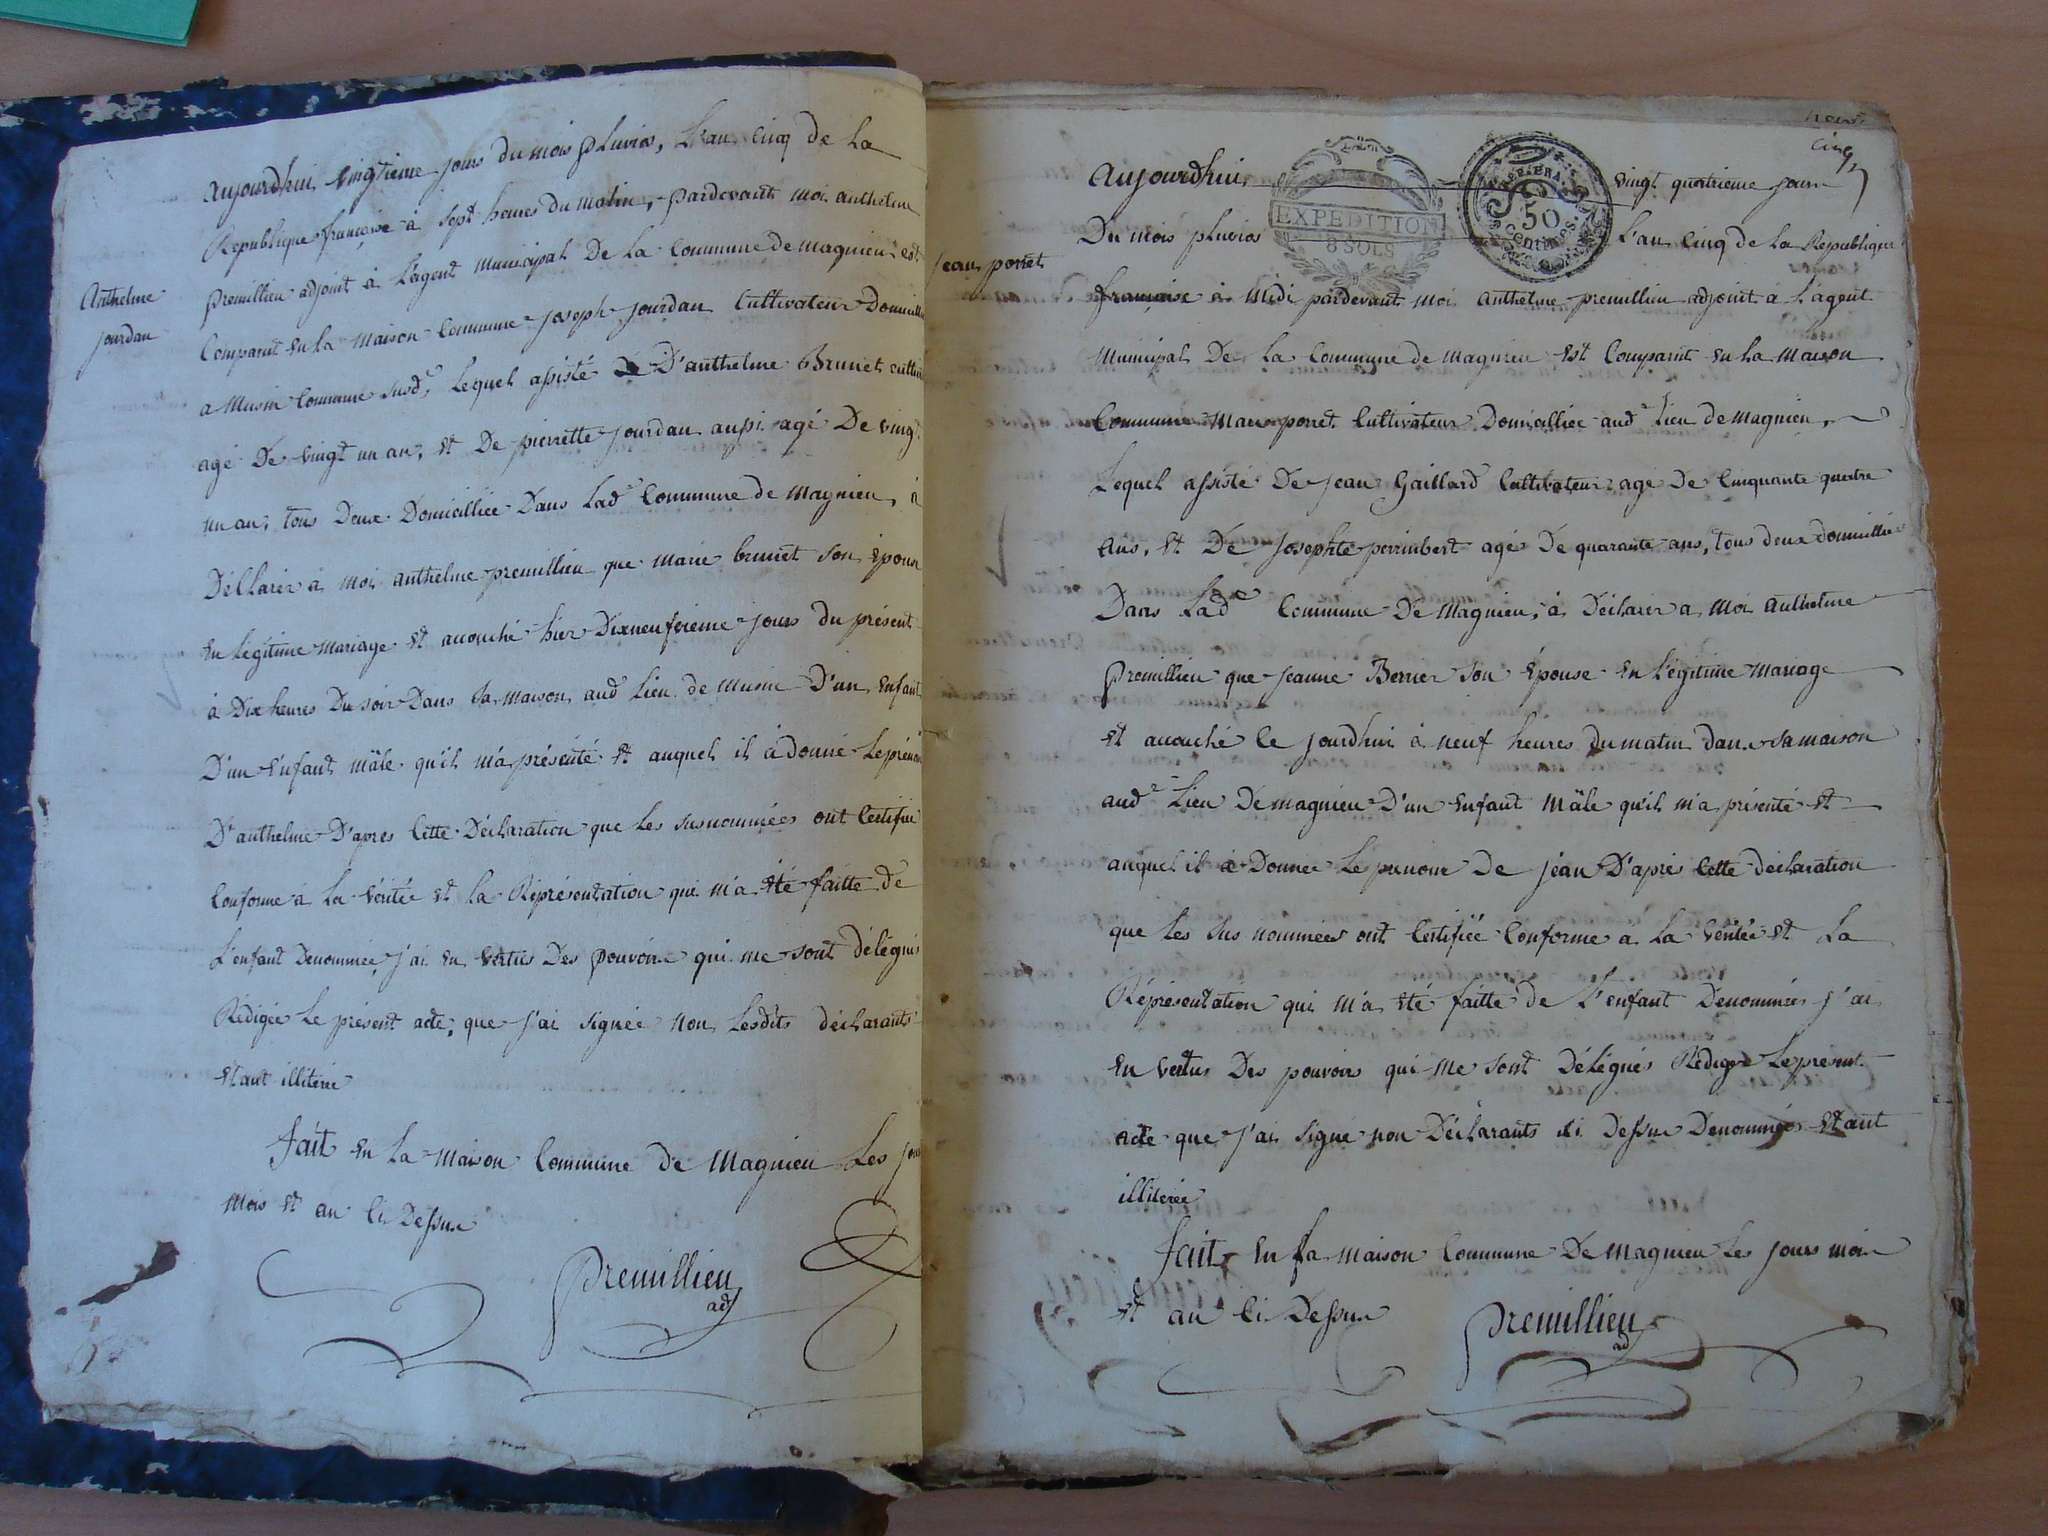 Anthelme
jourdan
aujourdhui vingtieme jours du mois pluvios, L'an cinq de La
Republique française à sept heures du matin, pardevant moi anthelme
premillieu adjoint à L'agent municipal De La Commune de magnieu est
Comparut en La maison Commune joseph jourdan Cultivateur Domicillié
a Musin Commune susd.e Lequel assisté D'anthelme Brunet
agé De vingt un an, et De pierrette jourdan aussi agé De vingt
un an, tous Deux Domicilliée Dans Lad.e Commune de magnieu, à
Déclarer à moi anthelme premillieu que marie brunet son épouse
en Légitime mariage et acouché hier Dixneufvieme jours du présent
à Dix heures Du soir Dans sa maison aud. Lieu de musin D'un enfant
D'un enfant mâle qu'il m'a présenté et auquel il à donné Le prénom
D'anthelme D'apres Cette Déclaration que Les susnommées ont Certifié
Conforme à La vérité et La Réprésentation qui m'a été faitte de
L'enfant Denommée, j'ai en vertus Des pouvoire qui me sont délégués
Rédigée Le présent acte, que j'ai signée non Lesdits déclarants
etant illiterée
fait en La maison Commune de Magnieu Les jour
mois et an Ci Dessue
premillieu
adj
cinq
jean porret
aujourdhui vingt quatrieme jour
Du mois pluvios L'an Cinq de La Republique
EXPEDITION
8 SOLS
50
Centimes
française à Midi pardevant moi anthelme premillieu adjoint à L'agent
municipal De La Commune de magnieu est Comparut en La maison
Commune porret Cultivateur Domicilliée aud.e Lieu de magnieu,
Lequel assisté De jean Gaillard Cultivateur agé De Cinquante quatre
ans, et De josephte perrimbert agée De quarante ans, tous deux domicilliée
Dans Lad.e Commune De Magnieu, à Déclarer a moi anthelme
premillieu que jeanne Berrier son épouse en Légitime mariage
et acouché Ce jourdhui à neuf heures du matin dans sa maison
aud.e Lieu De magnieu D'un enfant Mâle qu'il m'a présenté et
auquel il à Donnee Le prenom De jean D'apres Cette déclaration
que Les sus nommées ont Certifiée Conforme à La vérité et La
Réprésentation qui m'a été faitte de L'enfant Denommée j'ai
en vertus Des pouvoirs qui me sont Délégués Rédigé Le présent
acte que j'ai signé non Déclarants ci Dessue Denommées etant
illiterée
fait en La maison Commune De magnieu Les jours mois
et an Ci Dessue
premillieu
ad